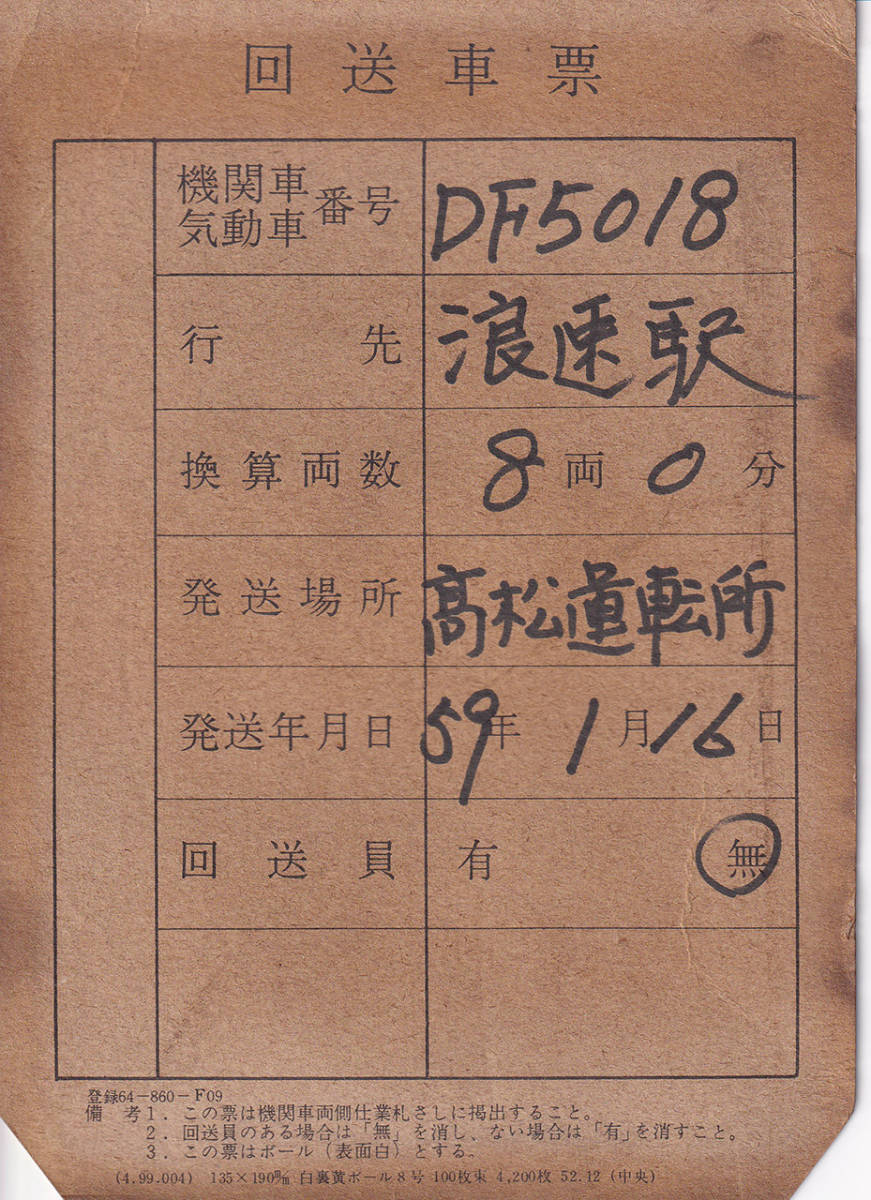 回送車票
機関車
気動車 番号 DF5018
行先 浪速駅
換算両数 8両0分
発送場所 高松運転所
発送年月日 59年1月16日
回送員 有 無
登録64-860-F09
備考1. この票は機関車両側仕業札さしに掲出すること。
2. 回送員のある場合は「無」を消し、ない場合は「有」を消すこと。
3. この票はボール(表面白)とする。
(4.99.004) 135×190㎜ 白裏黄ボール8号 100枚束 4,200枚 52.12 (中央)